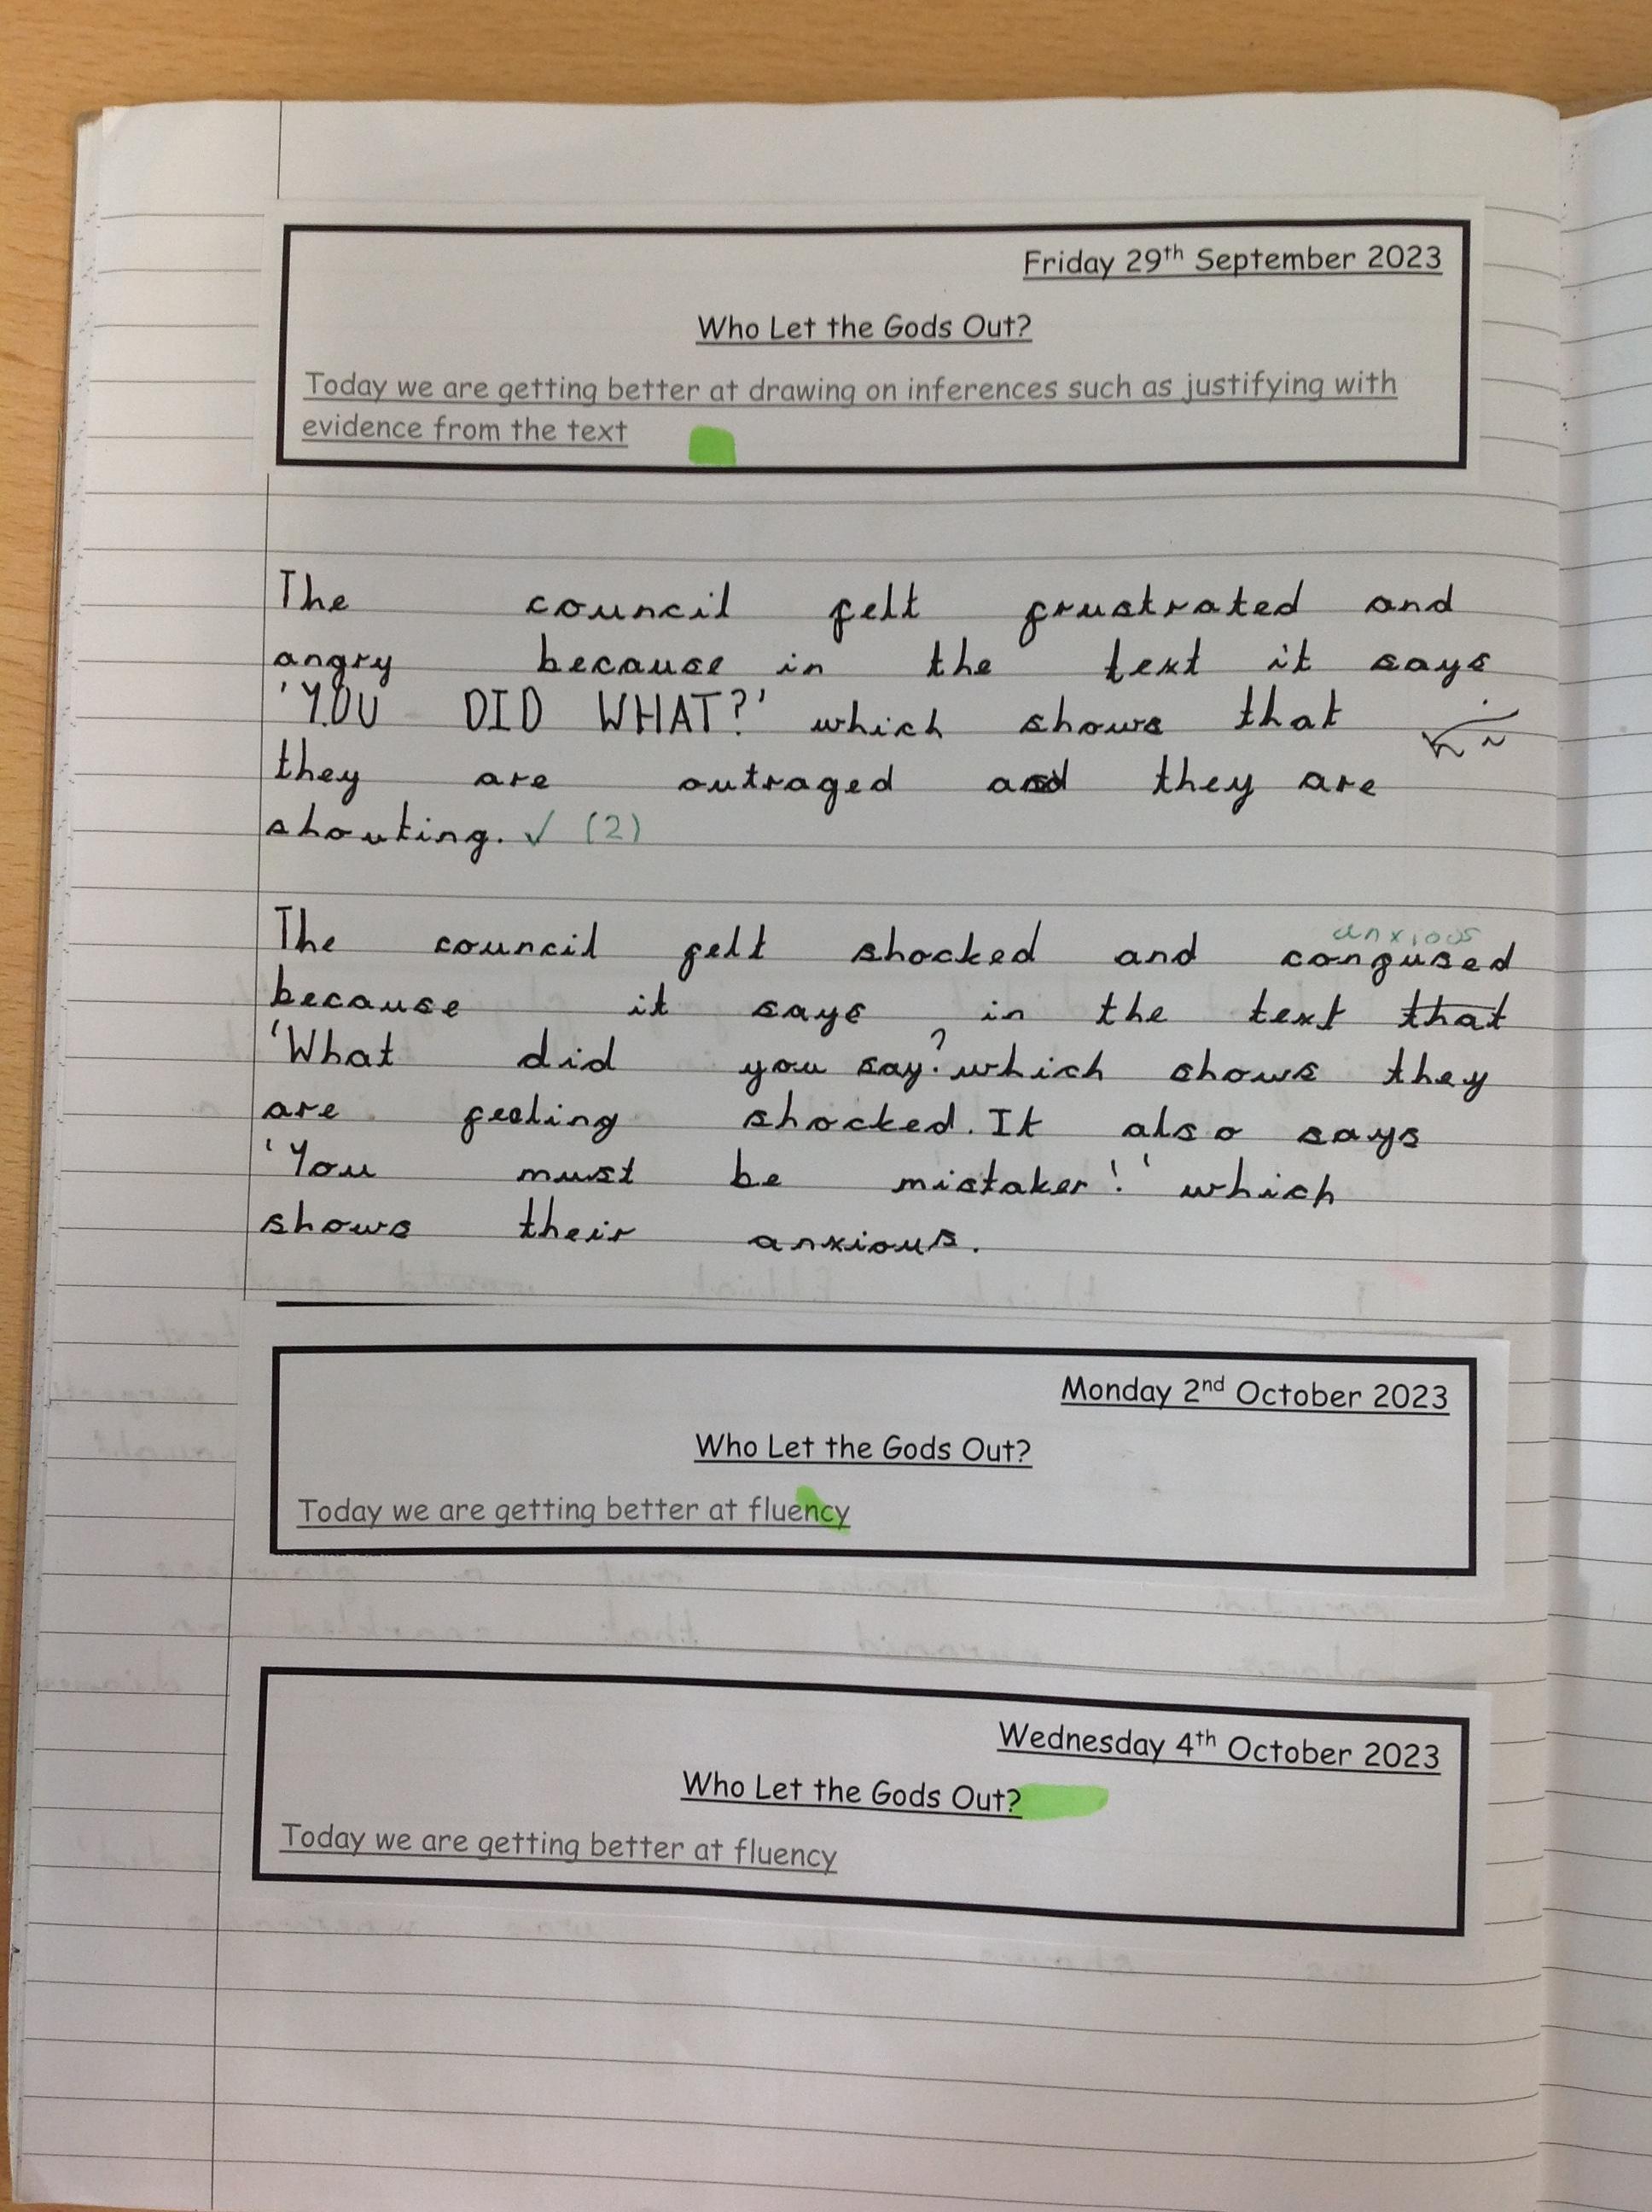 Friday 29th September 2023
Who Let the Gods Out?
Today we are getting better at drawing on inferences such as justifying with
evidence from the text
The council felt frustrated and
angry because in the text it says
'YOU DID WHAT?' which shows that
they are outraged and they are
shouting. ✓ (2)
anxious
The council felt shocked and confused
because it says in the text that
'What did you say?' which shows they
are feeling shocked. It also says
'You must be mistaken!' which
shows their anxious.
Monday 2nd October 2023
Who Let the Gods Out?
Today we are getting better at fluency
Wednesday 4th October 2023
Who Let the Gods Out?
Today we are getting better at fluency